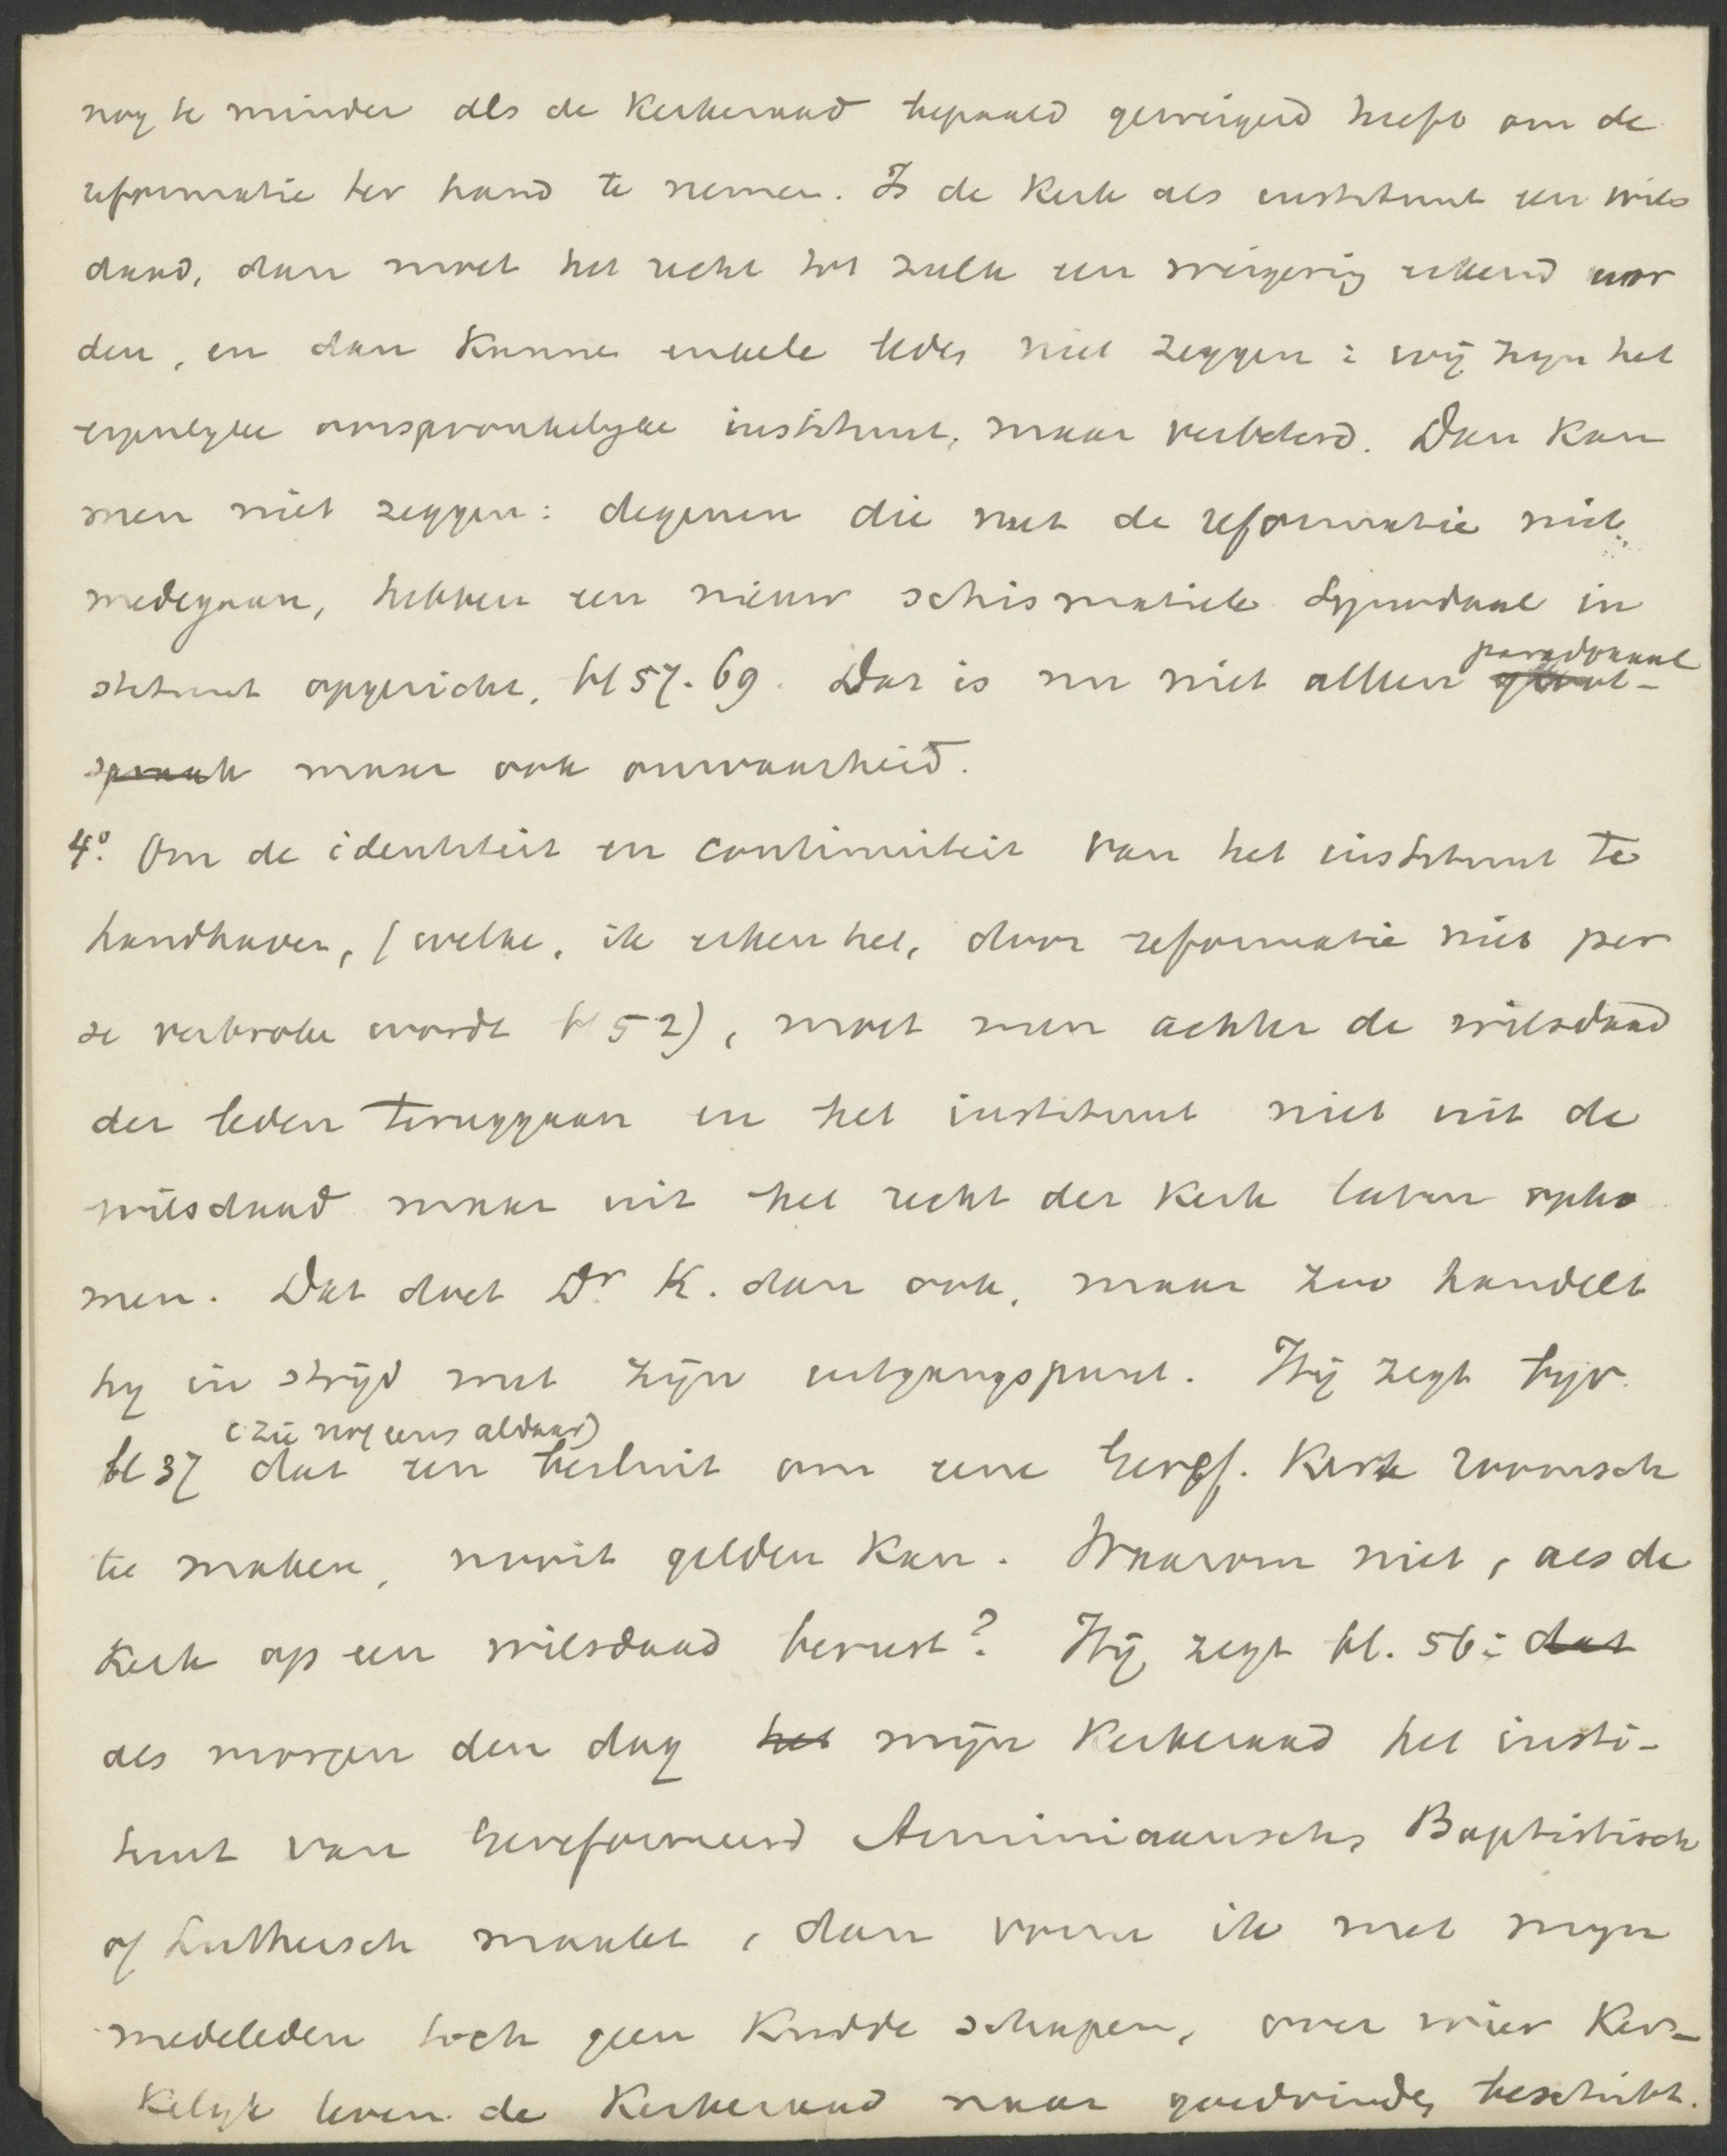 nog te minder als de Kerkeraad bepaald geweigerd heeft om de
reformatie ter hand te nemen. Is de Kerk als instituut een wils
daad, dan moet het recht tot zulk een weigering erkend wor
den, en dan kunnen enkele leden niet zeggen: wij zijn het
eigenlijke oorspronkelijke instituut, maar verbeterd. Dan kan
men niet zeggen: degenen die met de reformatie niet
medegaan, hebben een nieuw schismatiek Synodaal in
stituut opgericht, bl 57. 69. Dat is nu niet alleen
paradoxaal
spraak maar ook onwaarheid.
4º. Om de identiteit en continuiteit van het instituut te
handhaven, (welke, ik erken het, door reformatie niet per
se verbroken wordt bl 52), moet men achter de wilsdaad
der leden teruggaan en het instituut niet uit de
wilsdaad maar uit het recht der Kerk laten opko
men. Dat doet Dr K. dan ook, maar zoo handelt
hij in strijd met zijn uitgangspunt. Hij zegt bijv.
(zie nog eens aldaar)
bl 37 dat een besluit om eene Geref. Kerk roomsch
te maken, nooit gelden kan. Waarom niet, als de
Kerk op een wilsdaad berust? Hij zegt bl. 56: dat
als morgen den dag het mijn Kerkeraad het insti-
tuut van Gereformeerd Arminiaansch, Baptistisch
of Luthersch maakt, dan vorm ik met mijn
medeleden toch geen Kudde schapen, over wier Ker-
kelijk leven de Kerkeraad naar goedvinden beschikt.